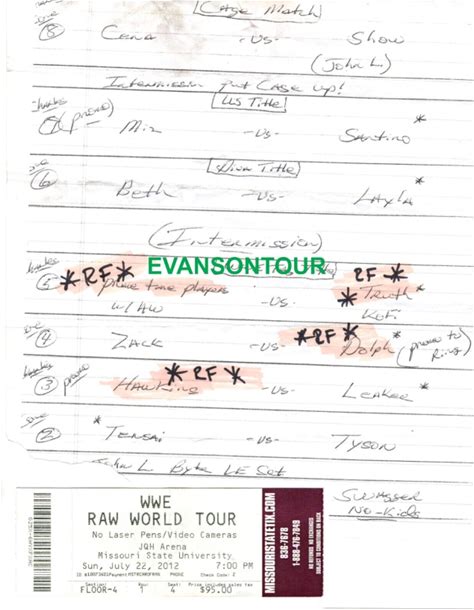 [Cage Match]
⑧ Cena -vs- Show
(John L.)
Intermission put Cage up!
[US Title]
(promo) Miz -vs- Santino *
[Diva Title]
⑥ Beth -vs- Layla *
(Intermission)
EVANSONTOUR
*RF* RF *
⑤ prime time players -vs- * Truth *
w/ AW Kofi
*RF *
④ Zack -vs- Dolph * (promo to Ring)
* RF *
③ promo Hawkins -vs- Leakee *
② * Tensai -vs- Tyson
John L
Swagger
No-Kids
WWE
RAW WORLD TOUR
No Laser Pens/Video Cameras
JQH Arena
Missouri State University
Sun, July 22, 2012 7:00 PM
PHONE Check Code: 2
Section: Row: Seat: Price includes sales tax
FLOOR-4 4 $95.00
MISSOURISTATETIX.COM
836-7678
1-888-476-7849
NO REFUNDS NO EXCHANGES
SUBJECT TO CONDITIONS ON BACK